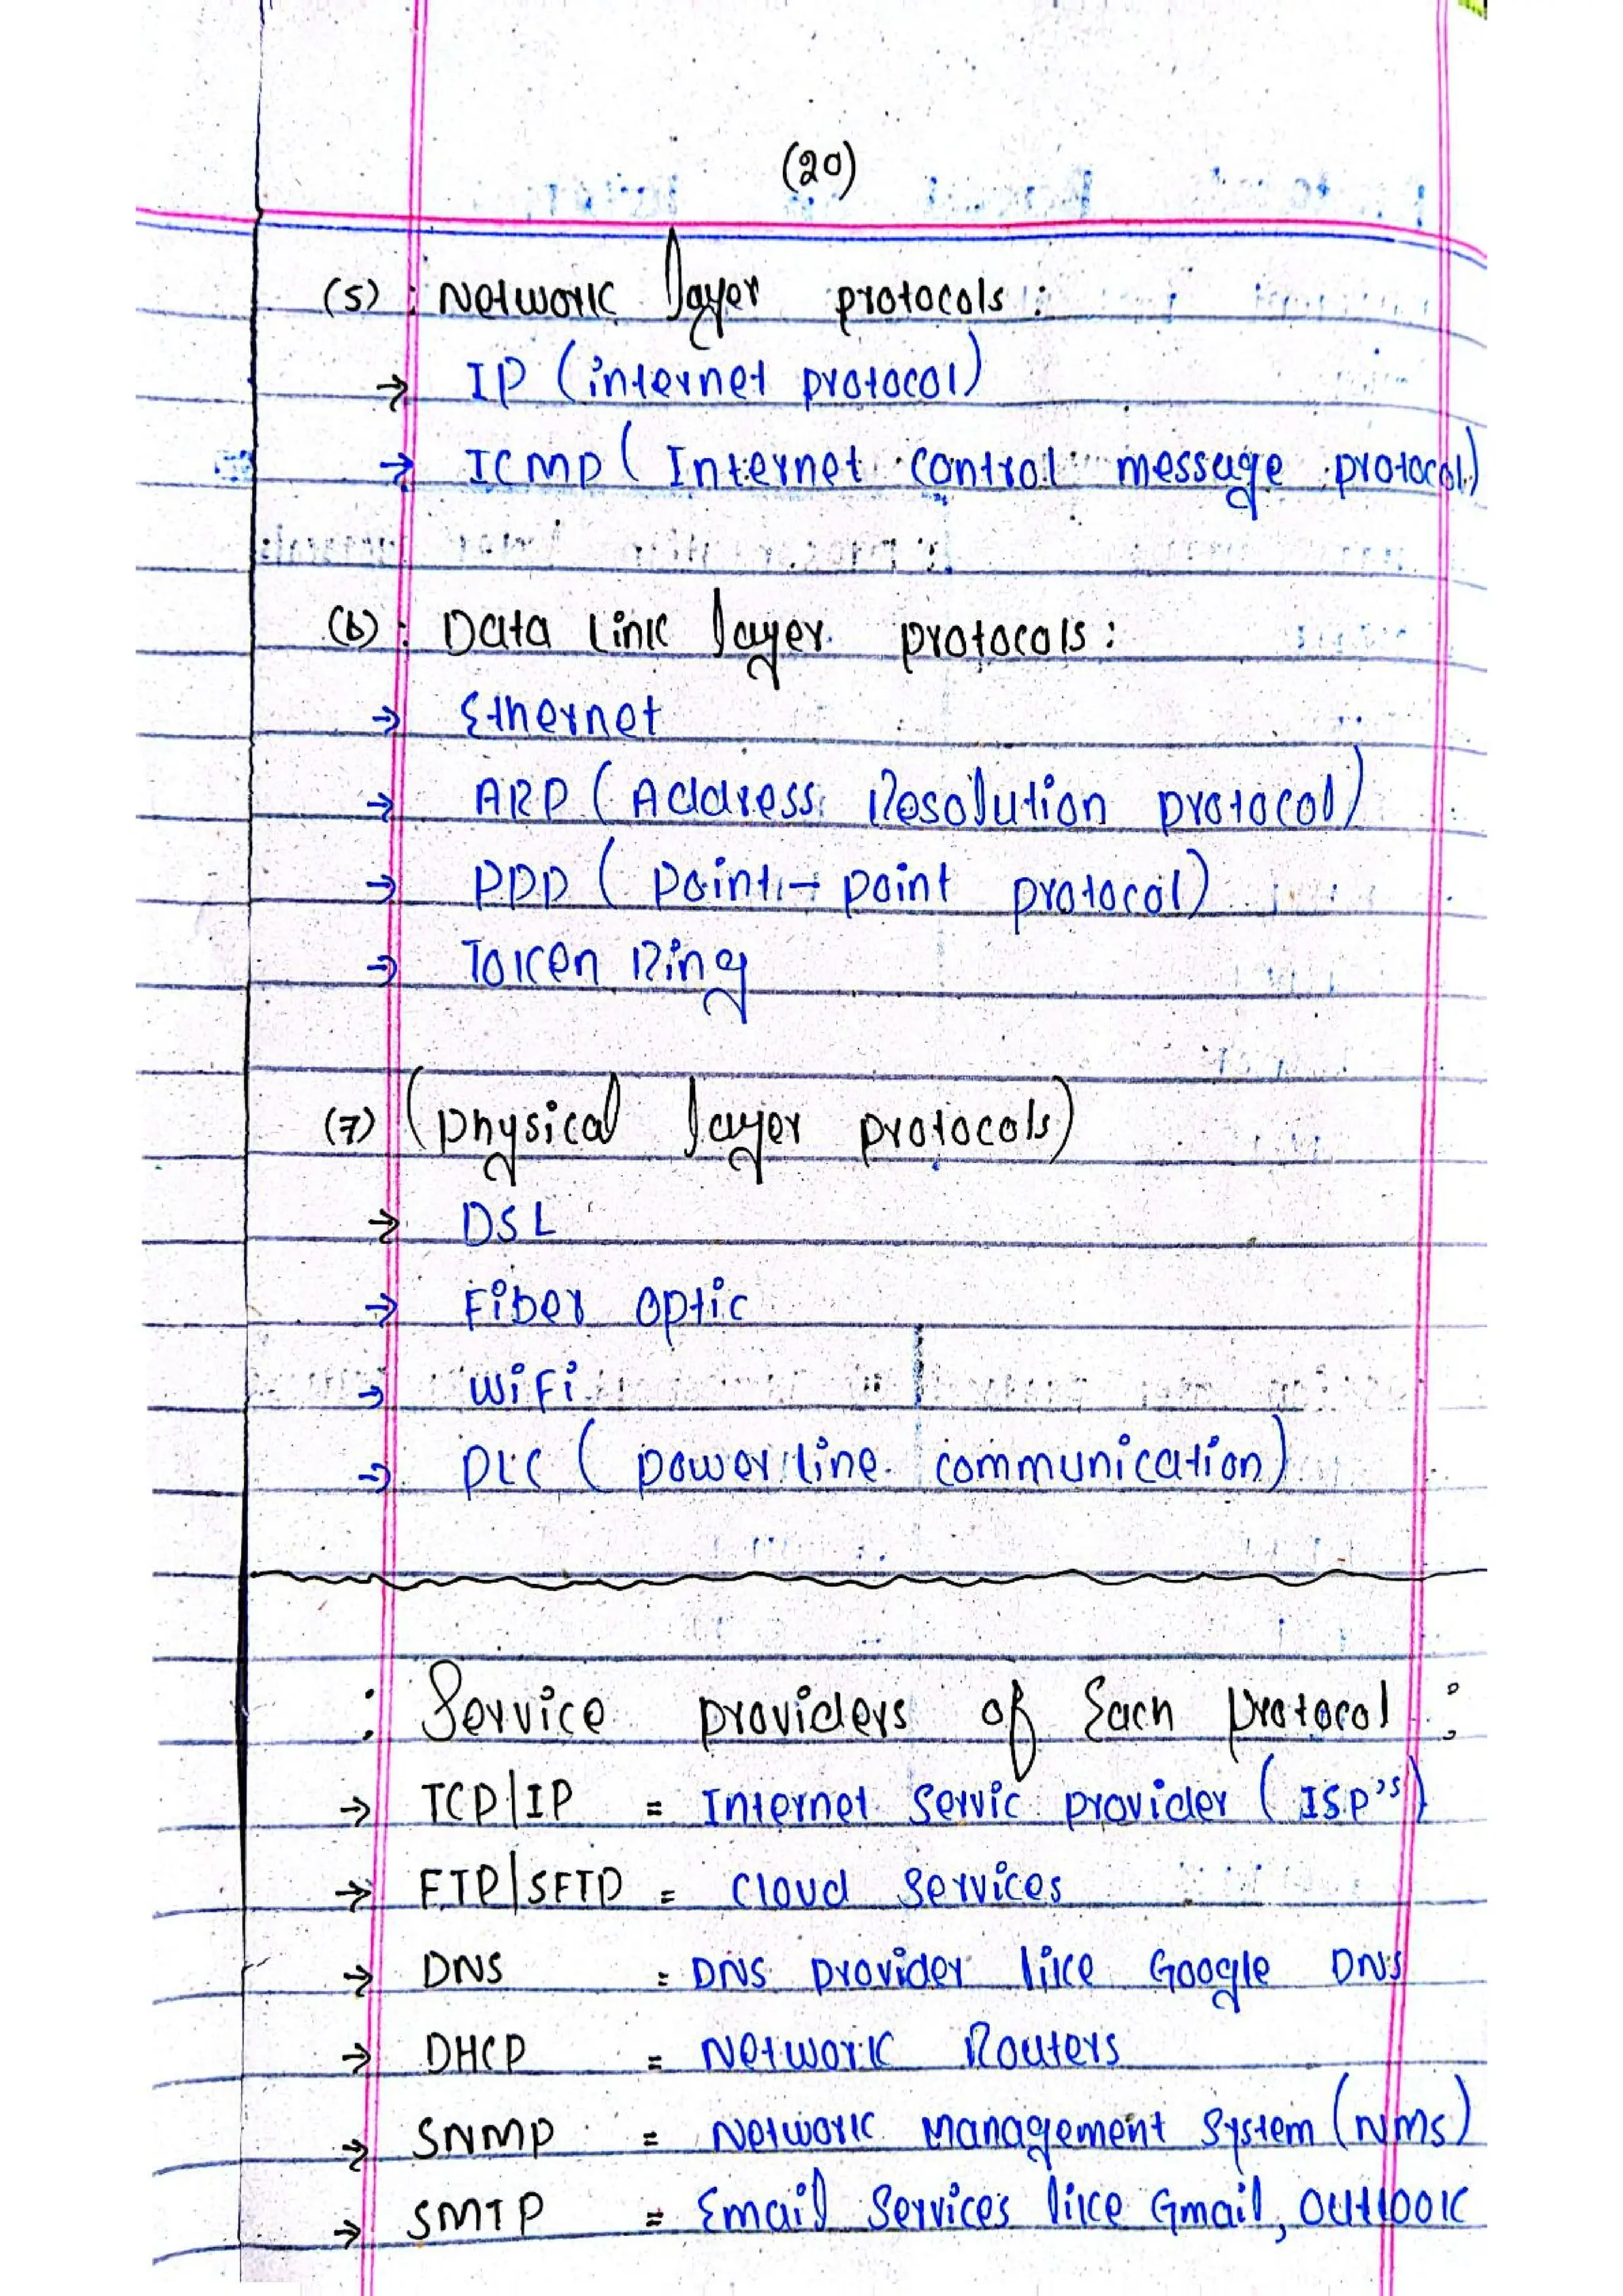 (20)
(5) : Network layer protocols :
→ IP (internet protocol)
→ ICMP ( Internet control message protocol)
(6) : Data Link layer protocols :
→ Ethernet
→ ARP ( Address Resolution protocol)
→ PPP ( point → point protocol)
→ Token Ring
(7) (physical layer protocols)
→ DSL
→ Fiber optic
→ WiFi
→ PLC ( power line communication)
: Service providers of Each protocol :
→ TCP/IP = Internet Servic provider ( ISP's)
→ FTP/SFTP = cloud services
→ DNS = DNS provider like Google DNS
→ DHCP = Network Routers
→ SNMP = Network Management System (NMS)
→ SMTP = Email Services like Gmail, Outlook